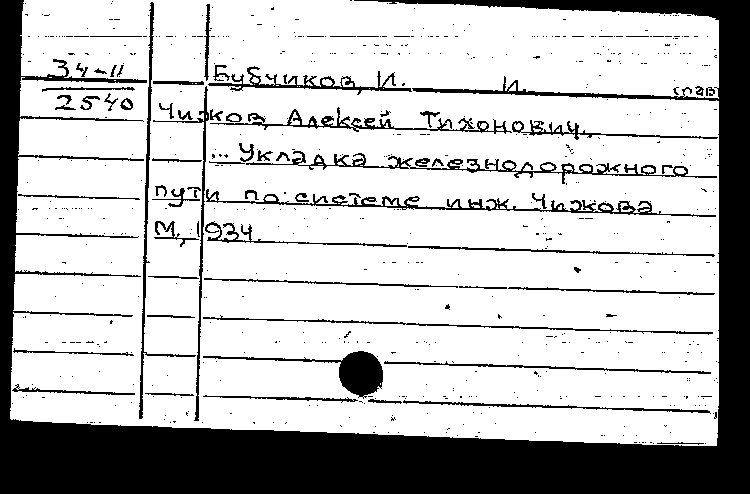 34-11
2540
Бубчиков, И. И.
Чижов, Алексей Тихонович.
... Укладка железнодорожного
пути по системе инж. Чижова.
М., 1934.